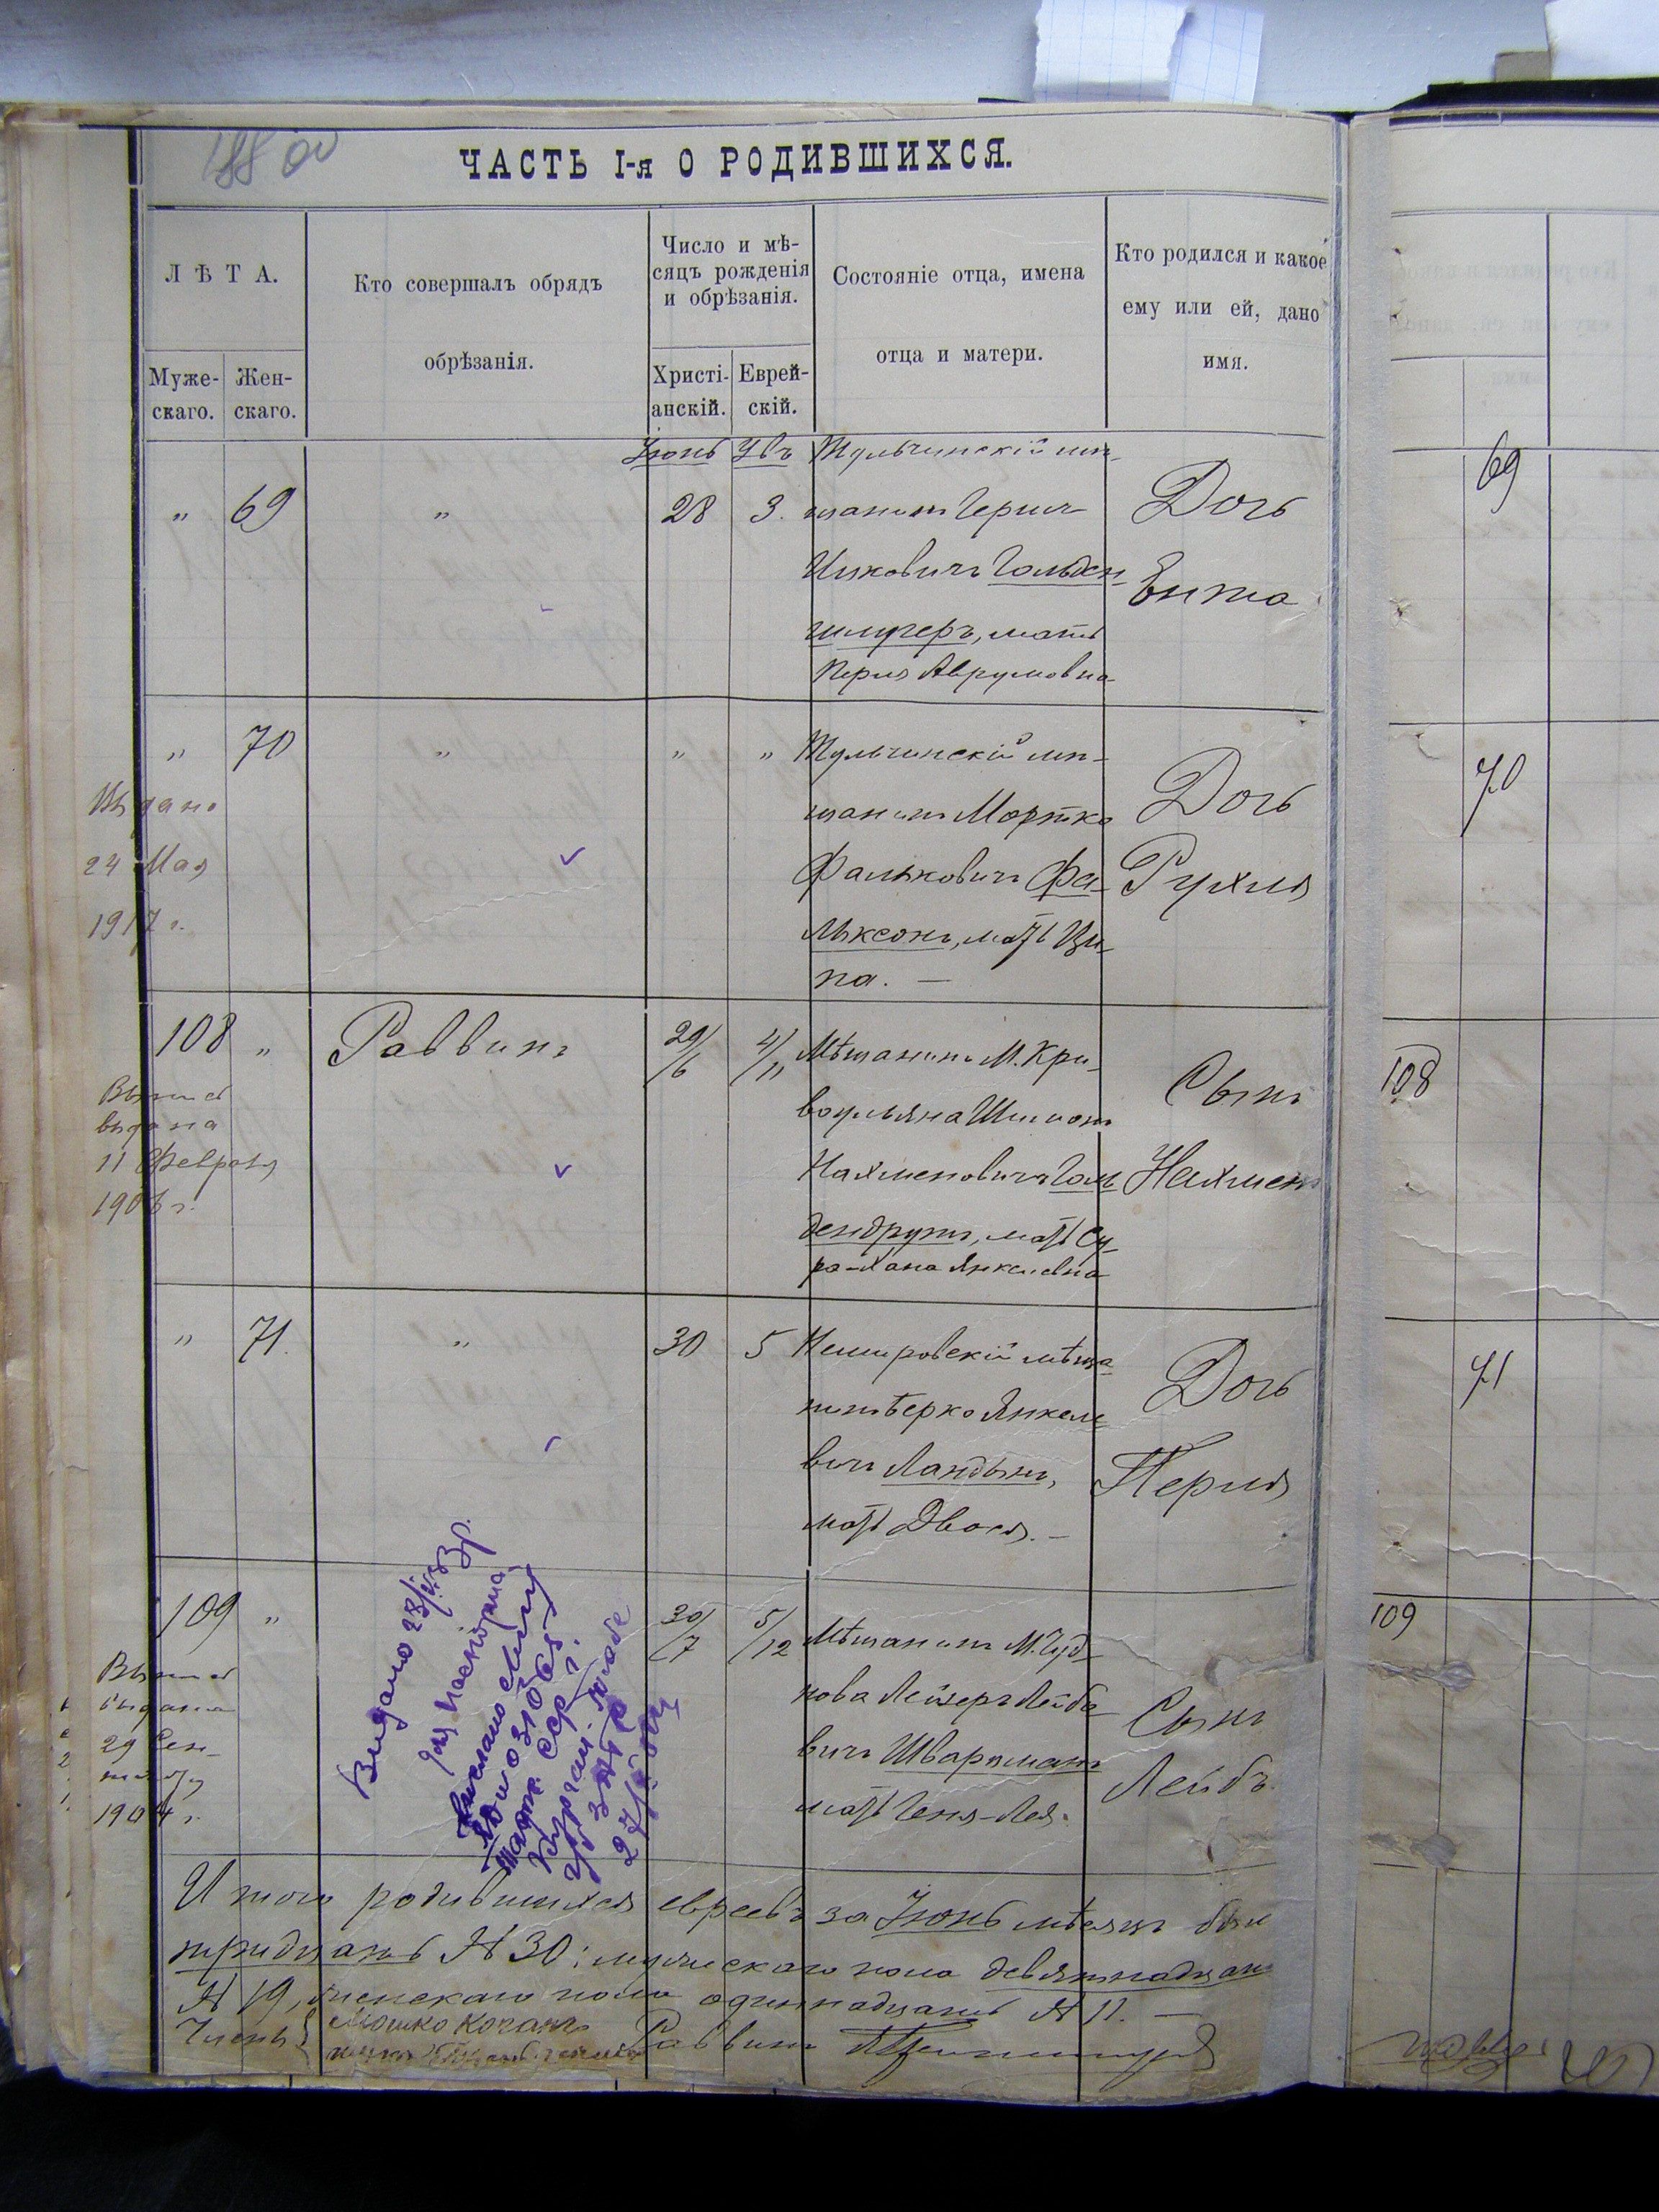 188 об
ЧАСТЬ I-я О РОДИВШИХСЯ.
ЛѢТА.
Муже-
скаго.
Жен-
скаго.
Кто совершалъ обрядъ
обрѣзанія.
Число и мѣ-
сяцъ рожденія
и обрѣзанія.
Христі-
анскій.
Еврей-
скій.
Состояніе отца, имена
отца и матери.
Кто родился и какое
ему или ей, дано
имя.
Іюнь
„ 69 „ 28 3.
Тульчинскій мѣ-
щанинъ Герш
Ицковичъ Гольден
шлугеръ, мать
Перля Аврумовна
Дочь
Ента
69
„ 70 „ „ „
Выдано
24 Мая
1917 г.
Тульчинскій мѣ-
щанинъ Мортко
Фальковичъ Фа-
льксонъ, мать Ци-
па. —
Дочь
Рухля
70
108 „ Раввинъ 29/6 4/11
выдана
11 Февраля
1906 г.
Мѣщанинъ М. Кри-
воульяна Шимон
Нахменовичъ Голь
дендрутъ, мать Су-
ра-Хана Янкелевна
Сынъ
Нахмен
108
„ 71. „ 30 5
Немировскій мѣща
нинъ Берко Янкеле
вичъ Ландынъ,
мать Двося. —
Дочь
Перля
71
109 „ 30/7 5/12
выдана
29 Сен-
1904 г.
Мѣщанинъ М. Чуд-
нова Лейзеръ Лейбо
вичъ Шварцманъ
мать Геня-Лея.
Сынъ
Лейбъ.
109
Видано
для паспорта
Итого родившихся евреевъ за Іюнь мѣсяцъ было
тридцать № 30: мужескаго пола девятнадцать
№ 19, женскаго пола одиннадцать № 11. —
Члены { Мошко Коганъ
Раввинъ